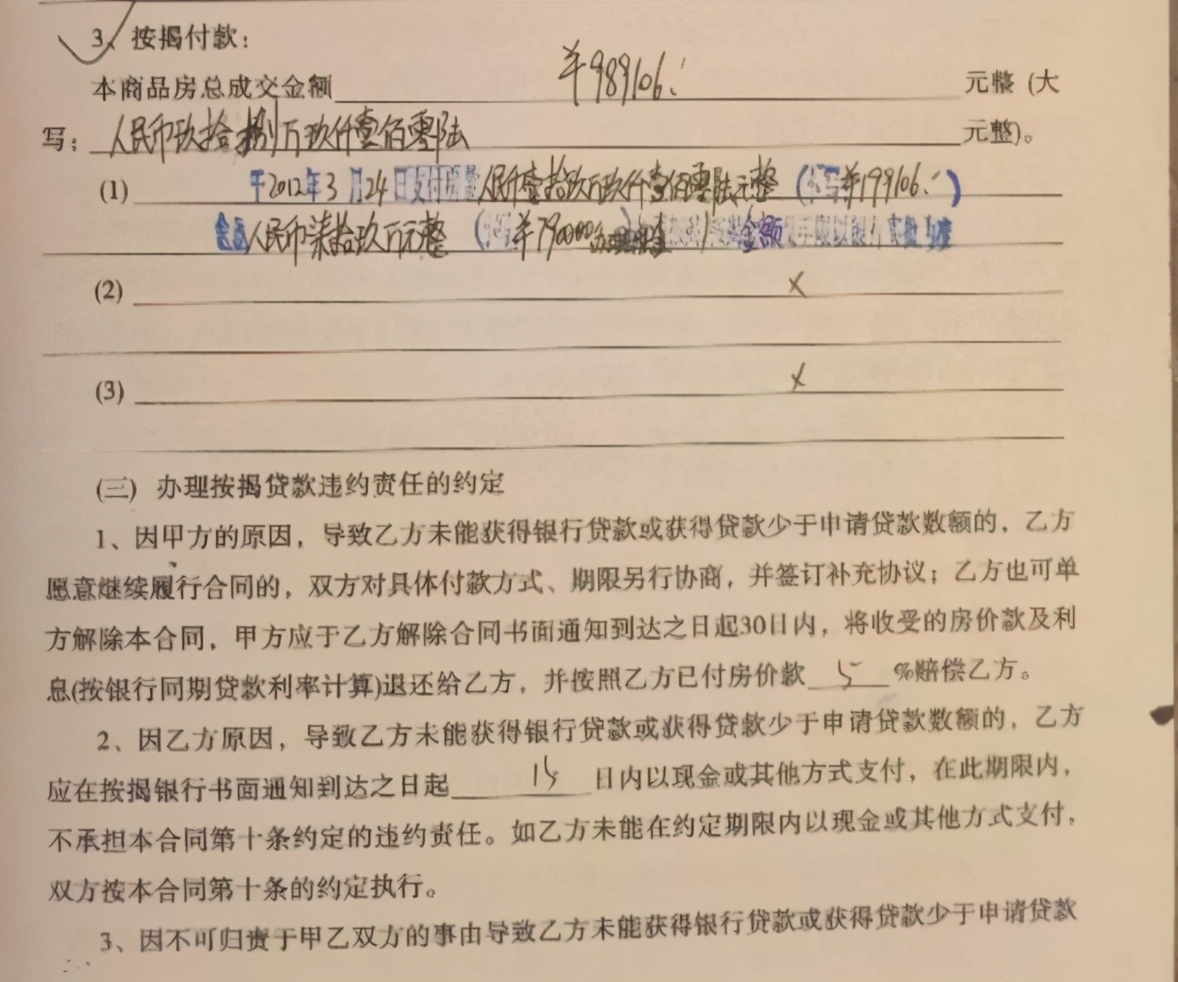 3、按揭付款：
本商品房总成交金额 ¥989106. 元整 (大
写：人民币玖拾捌万玖仟壹佰零陆 元整)。
(1) 于2012年3月24日支付房款人民币壹拾玖万玖仟壹佰零陆元整（小写¥199106.）
金额人民币柒拾玖万元整（小写¥790000 办理 金额 以银行审批为准
(2) ×
(3) ×
(三) 办理按揭贷款违约责任的约定
1、因甲方的原因，导致乙方未能获得银行贷款或获得贷款少于申请贷款数额的，乙方
愿意继续履行合同的，双方对具体付款方式、期限另行协商，并签订补充协议；乙方也可单
方解除本合同，甲方应于乙方解除合同书面通知到达之日起30日内，将收受的房价款及利
息(按银行同期贷款利率计算)退还给乙方，并按照乙方已付房价款 5 %赔偿乙方。
2、因乙方原因，导致乙方未能获得银行贷款或获得贷款少于申请贷款数额的，乙方
应在按揭银行书面通知到达之日起 15 日内以现金或其他方式支付，在此期限内，
不承担本合同第十条约定的违约责任。如乙方未能在约定期限内以现金或其他方式支付，
双方按本合同第十条的约定执行。
3、因不可归责于甲乙双方的事由导致乙方未能获得银行贷款或获得贷款少于申请贷款